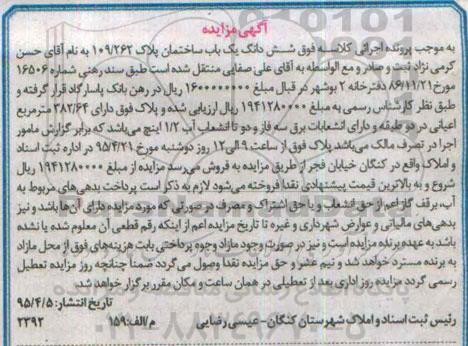 آگهی مزایده
به موجب پرونده اجرائی کلاسه فوق شش دانگ یک باب ساختمان پلاک ۱۰۹/۲۶۲ به نام آقای حسن
کرمی نژاد ثبت و صادر و مع الواسطه به آقای علی صفایی منتقل شده است طبق سند رهنی شماره ۱۶۵۰۶
مورخ ۸۶/۱۱/۲۱ دفترخانه ۲ بوشهر در قبال مبلغ ۱۶۰۰۰۰۰۰۰۰ ریال در رهن بانک پاسارگاد قرار گرفته و
طبق نظر کارشناس رسمی به مبلغ ۱۹۴۱۲۸۰۰۰۰ ریال ارزیابی شده و پلاک فوق دارای ۳۸۲/۶۴ مترمربع
اعیانی در دو طبقه و دارای انشعابات برق سه فاز و دو تا انشعاب آب ۱/۲ اینچ می‌باشد که برابر گزارش مامور
اجرا در تصرف مالک می‌باشد پلاک فوق از ساعت ۹ الی ۱۲ روز دوشنبه مورخ ۹۵/۴/۲۱ در اداره ثبت اسناد
و املاک واقع در کنگان خیابان فجر از طریق مزایده به فروش می‌رسد مزایده از مبلغ ۱۹۴۱۲۸۰۰۰۰ ریال
شروع و به بالاترین قیمت پیشنهادی نقدا فروخته می‌شود لازم به ذکر است پرداخت بدهی‌های مربوط به
آب، برق، گاز اعم از حق انشعاب و یا حق اشتراک و مصرف در صورتی که مورد مزایده دارای آن‌ها باشد و نیز
بدهی‌های مالیاتی و عوارض شهرداری و غیره تا تاریخ مزایده اعم از اینکه رقم قطعی آن معلوم شده یا نشده
باشد به عهده برنده مزایده است و نیز در صورت وجود مازاد وجوه پرداختی بابت هزینه‌های فوق از محل مازاد
به برنده مسترد خواهد شد و نیم عشر و حق مزایده نقدا وصول می‌گردد ضمنا چنانچه روز مزایده تعطیل
رسمی گردد مزایده روز اداری بعد از تعطیلی در همان ساعت و مکان مقرر برگزار خواهد شد.
تاریخ انتشار: ۹۵/۴/۵
رئیس ثبت اسناد و املاک شهرستان کنگان - عیسی رضایی م/الف: ۱۵۹ ۲۳۹۲